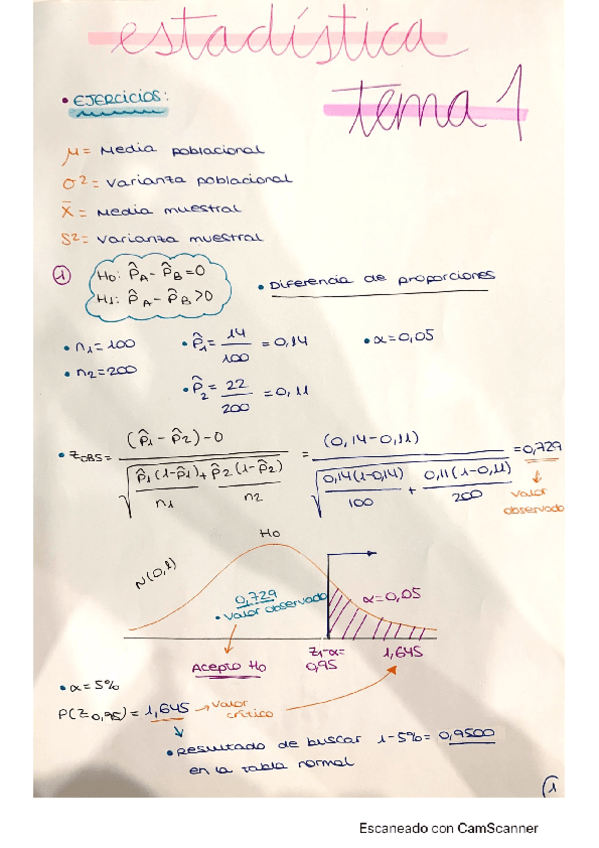 estadística
tema 1
• EJERCICIOS:
μ = Media poblacional
σ² = Varianza poblacional
x̄ = Media muestral
S² = Varianza muestral
① H₀: P̂A - P̂B = 0
H₁: P̂A - P̂B > 0
• Diferencia de proporciones
• n₁ = 100 • P̂₁ = 14/100 = 0,14 • α = 0,05
• n₂ = 200
• P̂₂ = 22/200 = 0,11
• ZOBS = (P̂₁ - P̂₂) - 0 / √(P̂₁(1-P̂₁)/n₁ + P̂₂(1-P̂₂)/n₂) = (0,14-0,11) / √(0,14(1-0,14)/100 + 0,11(1-0,11)/200) = 0,729
valor observado
H₀
N(0,1)
0,729
• valor observado
α = 0,05
Acepto H₀
Z1-α = 0,95
1,645
• α = 5%
P(Z0,95) = 1,645 → valor crítico
• Resultado de buscar 1-5% = 0,9500
en la tabla normal
1
Escaneado con CamScanner